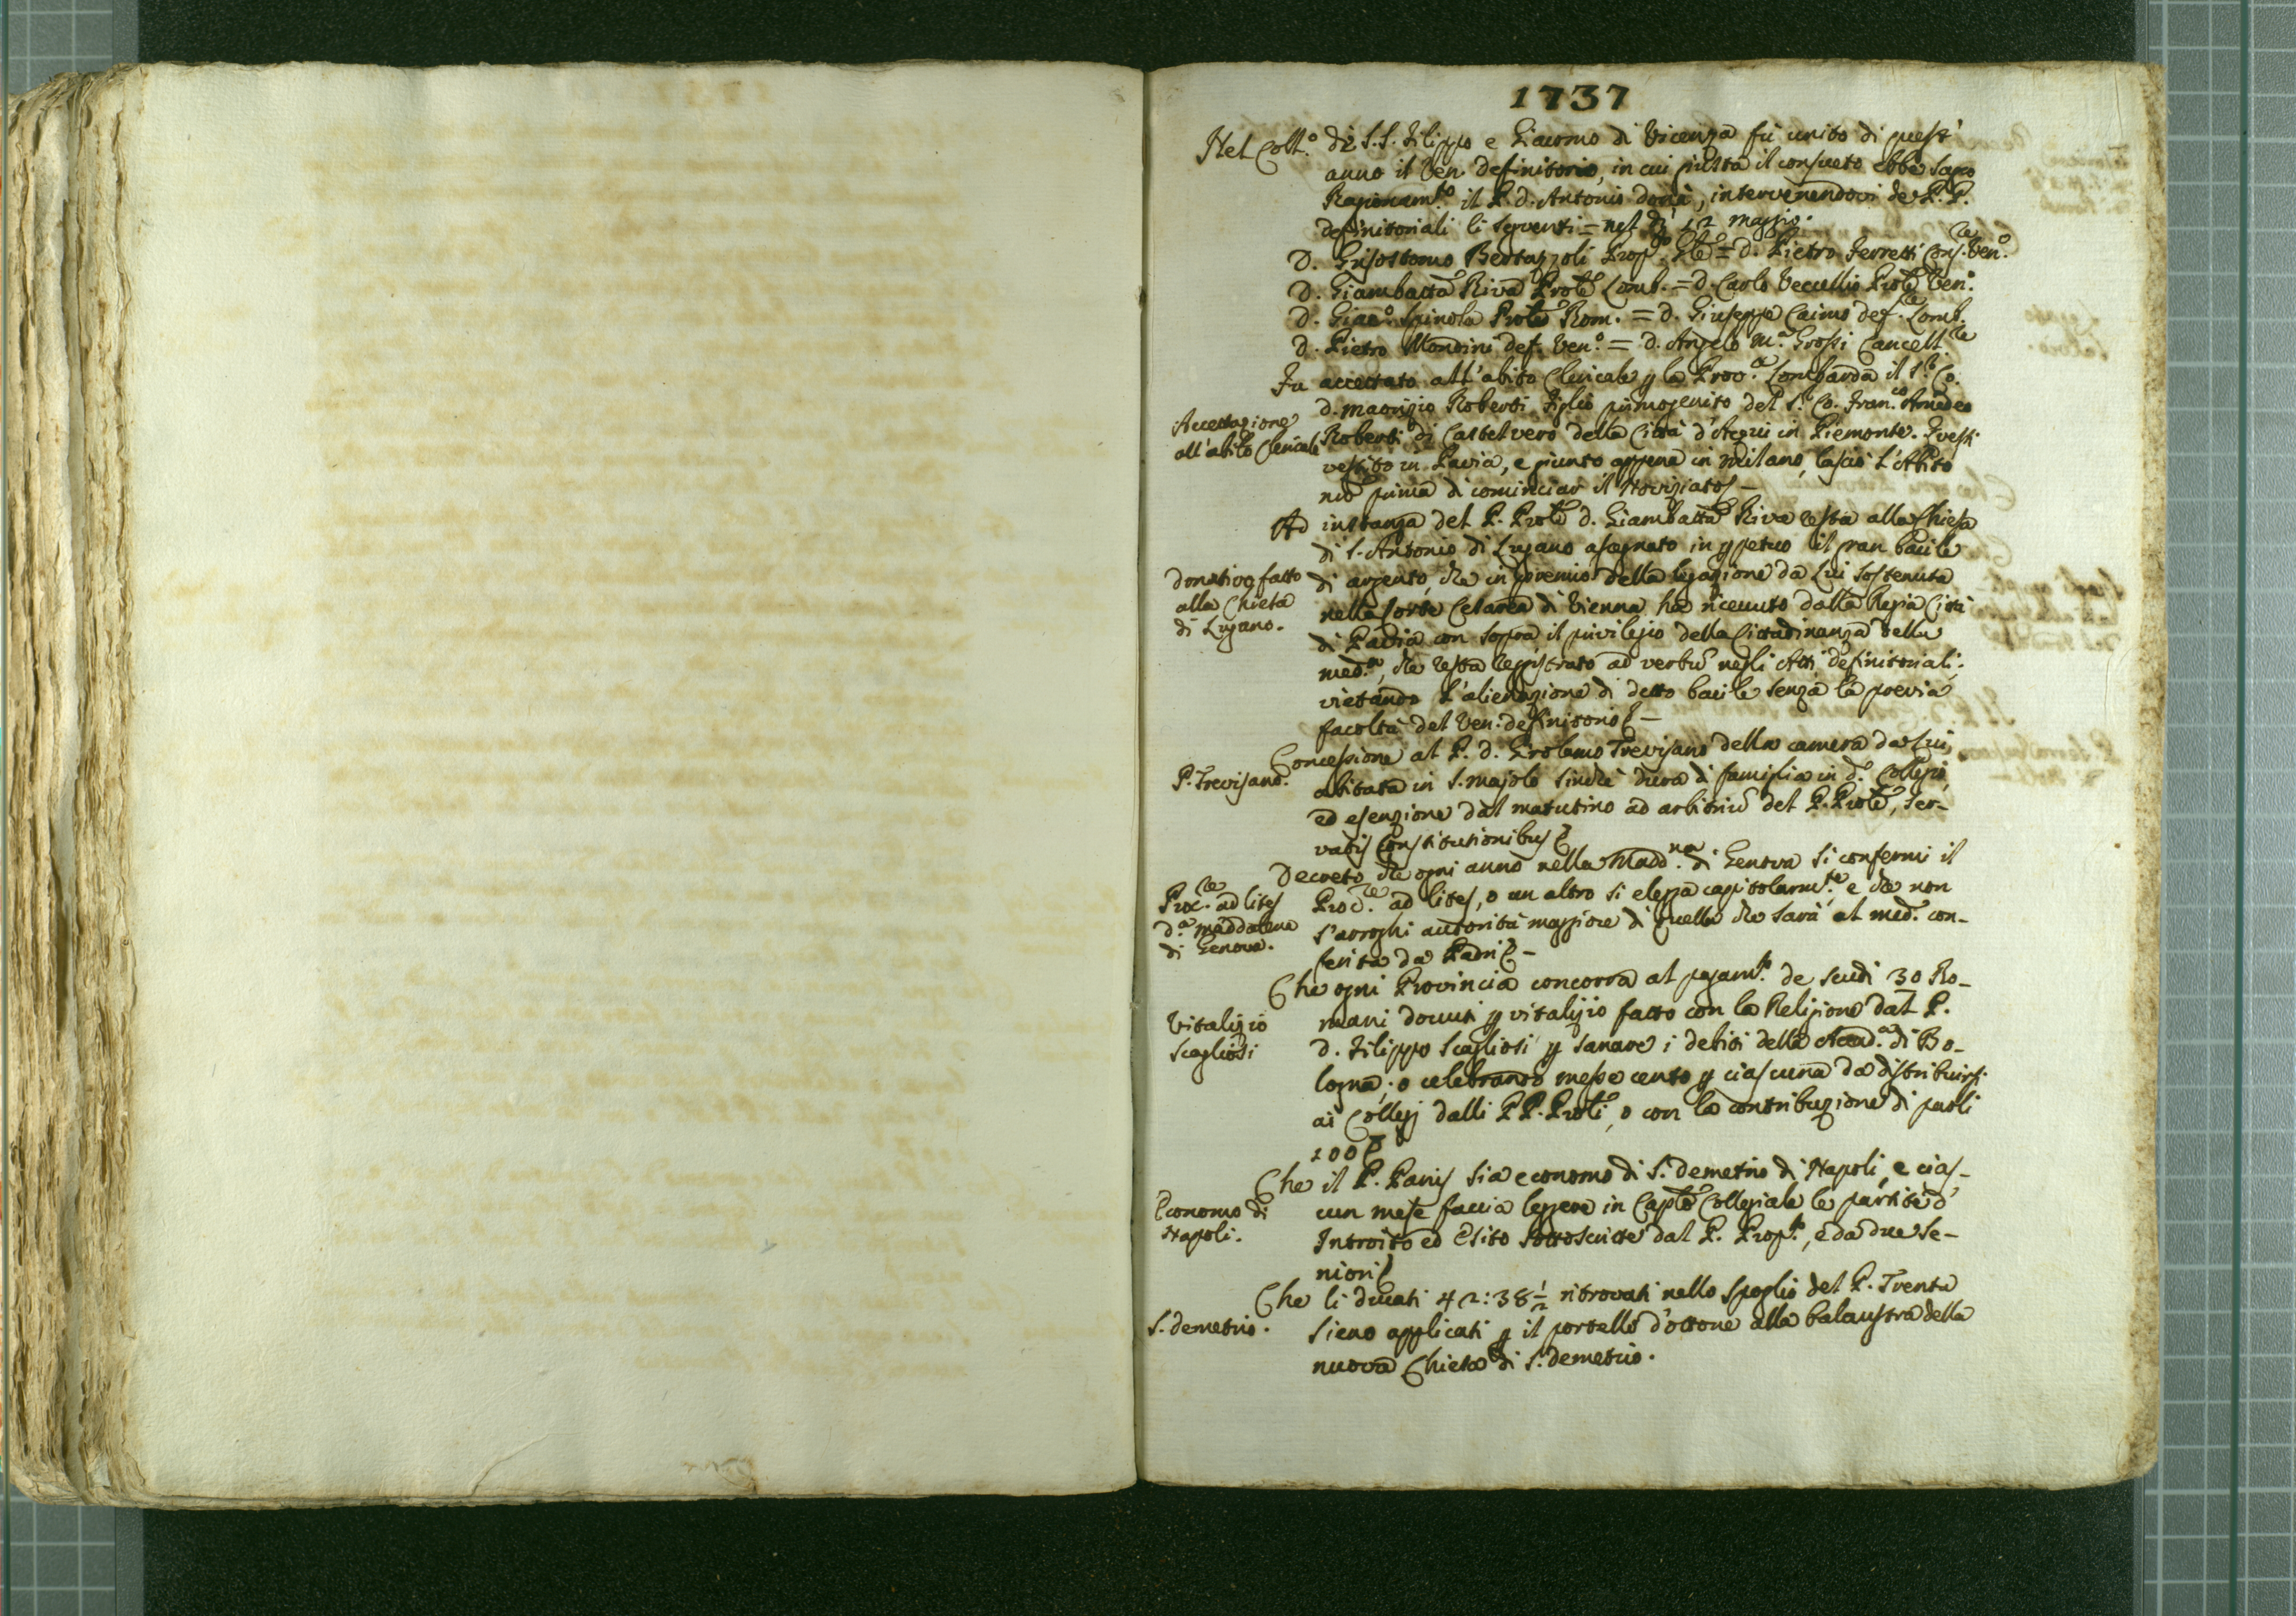 1737
Nel Coll.o di S.S. Filippo e Giacomo di Vicenza fù unito di quest'
anno il Ven. Definitorio, in cui giusta il consueto ebbe sagro
Ragionam.to il P. d. Antonio Donà, intervenendovi de P.P.
definitoriali li seguenti = nel dì 12 Maggio.
D. Grisostomo Bertazzoli Prop.to Gle = D. Pietro Ferretti Cons.re Ven.o
D. Giambatta Riva Prole Lomb. = D. Carlo Vecellio Prole Ven.o
D. Giac.o Spinola Prole Rom. = D. Giuseppe Caimo def.re Lomb.
D. Pietro Mondini def. Ven.o = D. Angelo M.a Grossi Cancell.re
Accettazione
all'abito Clericale
Fu accettato all'abito Clericale p la Prov.a Lombarda il S.r Co.
D. Maorizio Roberti, Figlio primogenito del S. Co. Fran.co Amedeo
Roberti di Castelvero della Città d'Acqui in Piemonte. Questi
vestito in Pavia, e giunto appena in Milano, lasciò l'Abito
nio prima di cominciar il Noviziato —
Donativo fatto
alla Chiesa
di Lugano.
Ad instanza del P. Prole D. Giambatta Riva resta alla Chiesa
di S. Antonio di Lugano assegnato in ppetuo il gran bacile
di argento, che in premio della legazione da Lui sostenuta
nella Corte Cesarea di Vienna ha ricevuto dalla Regia Città
di Pavia con sopra il privilegio della Cittadinanza della
med.a, che resta registrato ad verbū negli Atti definitoriali;
vietando l'alienazione di detto bacile senza la previa
facoltà del Ven. definitorio —
P. Trevisano.
Concessione al P. D. Girolamo Trevisano della camera da Lui
abitata in S. Majolo sinchè durerà di famiglia in d.o Collegio,
ed esenzione dal matutino ad arbitriū del P. Prole, ser-
vatis Constitutionibus
Proc.re ad lites
d.a Maddalena
di Genova.
Decreto che ogni anno nella Madd.na di Genova si confermi il
Proc.re ad lites, o un altro si elegga capitolarm.te e che non
s'arroghi autorità maggiore di quella che sarà al med.o con-
ferita da Padri —
Vitalizio
Scagliosi
Che ogni Provincia concorra al pagam.to de scudi 30 Ro-
mani dovuti p vitalizio fatto con la Religione dal P.
D. Filippo Scagliosi p sanare i debiti della Accad.a di Bo-
logna; o celebrando messe cento p ciascuna da distribuirsi
ai Collegj dalli P P. Proli, o con la contribuzione di paoli
100
Economo di
Napoli.
Che il P. Panis sia economo di S. Demetrio di Napoli, e cias-
cun mese faccia leggere in Caplo Collegiale le partite d'
Introito ed Esito sottoscritte dal P. Prop.to, e da due Se-
niori
S. Demetrio.
Che li ducati 42:38 1/2 ritrovati nello spoglio del P. Trenta
sieno applicati p il portello d'ottone alla balaustra della
nuova Chiesa di S. Demetrio.